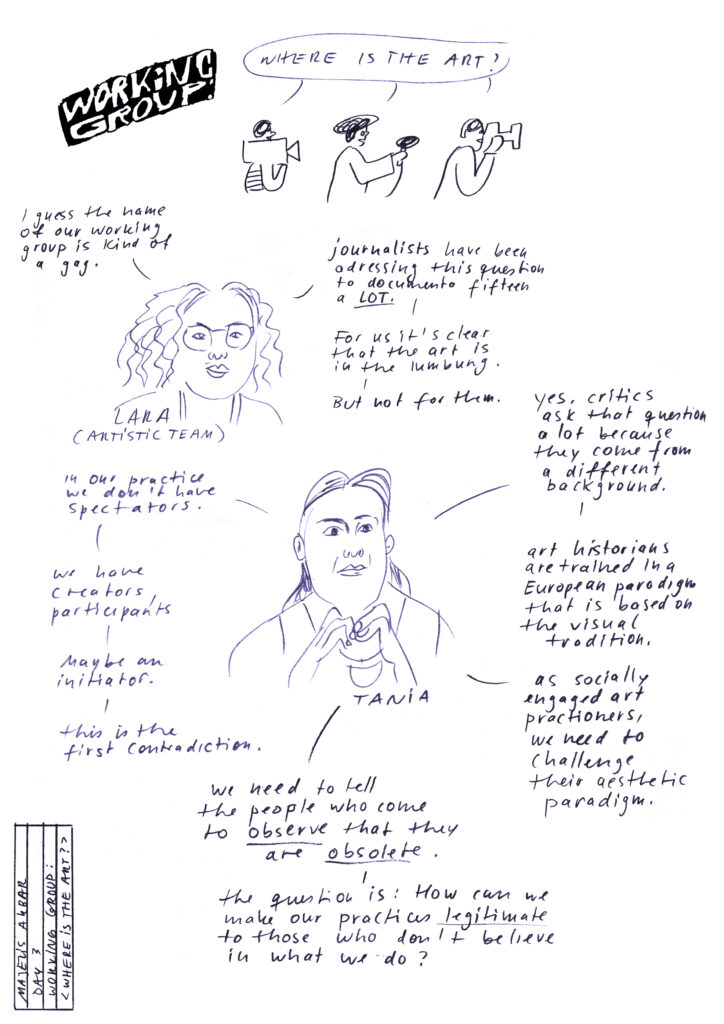 WORKING
GROUP:
WHERE IS THE ART?
I guess the name
of our working
group is kind of
a gag.
journalists have been
adressing this question
to documenta fifteen
a LOT.
For us it's clear
that the art is
in the lumbung.
But not for them.
LARA
(ARTISTIC TEAM)
yes, critics
ask that question
a lot because
they come from
a different
background.
in our practice
we don't have
spectators.
we have
creators,
participants
Maybe an
initiator.
this is the
first contradiction.
art historians
are trained in a
European paradigm
that is based on
the visual
tradition.
TANIA
as socially
engaged art
practioners,
we need to
challenge
their aesthetic
paradigm.
we need to tell
the people who come
to observe that they
are obsolete.
the question is: How can we
make our practices legitimate
to those who don't believe
in what we do?
MAJELIS AKBAR
DAY 3
WORKING GROUP:
<WHERE IS THE ART?>